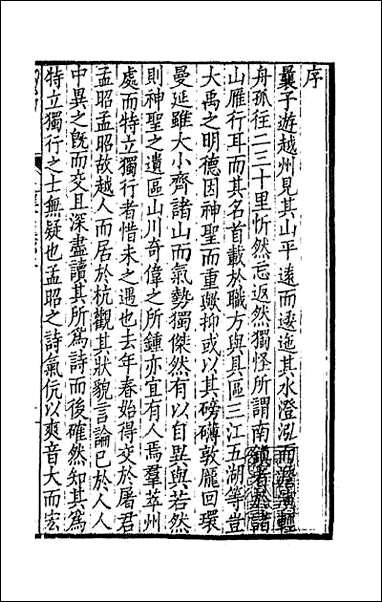 序
曩子遊越州見其山平遠而逶迤其水澄泓而瀠洄輕
舟孤往二三十里忻然忘返然獨怪所謂南鎮者於諸
山雁行耳而其名首載於職方與具區三江五湖等豈
大禹之明德因神聖而重歟抑或以其磅礴敦龐回環
曼延雖大小齊諸山而氣勢獨傑然有以自異與若然
則神聖之遺區山川奇偉之所鍾亦宜有人焉羣萃州
處而特立獨行者惜未之遇也去年春始得交於屠君
孟昭孟昭故越人而居於杭觀其狀貌言論已於人人
中異之旣而交且深盡讀其所爲詩而後確然知其爲
特立獨行之士無疑也孟昭之詩氣伉以爽音大而宏